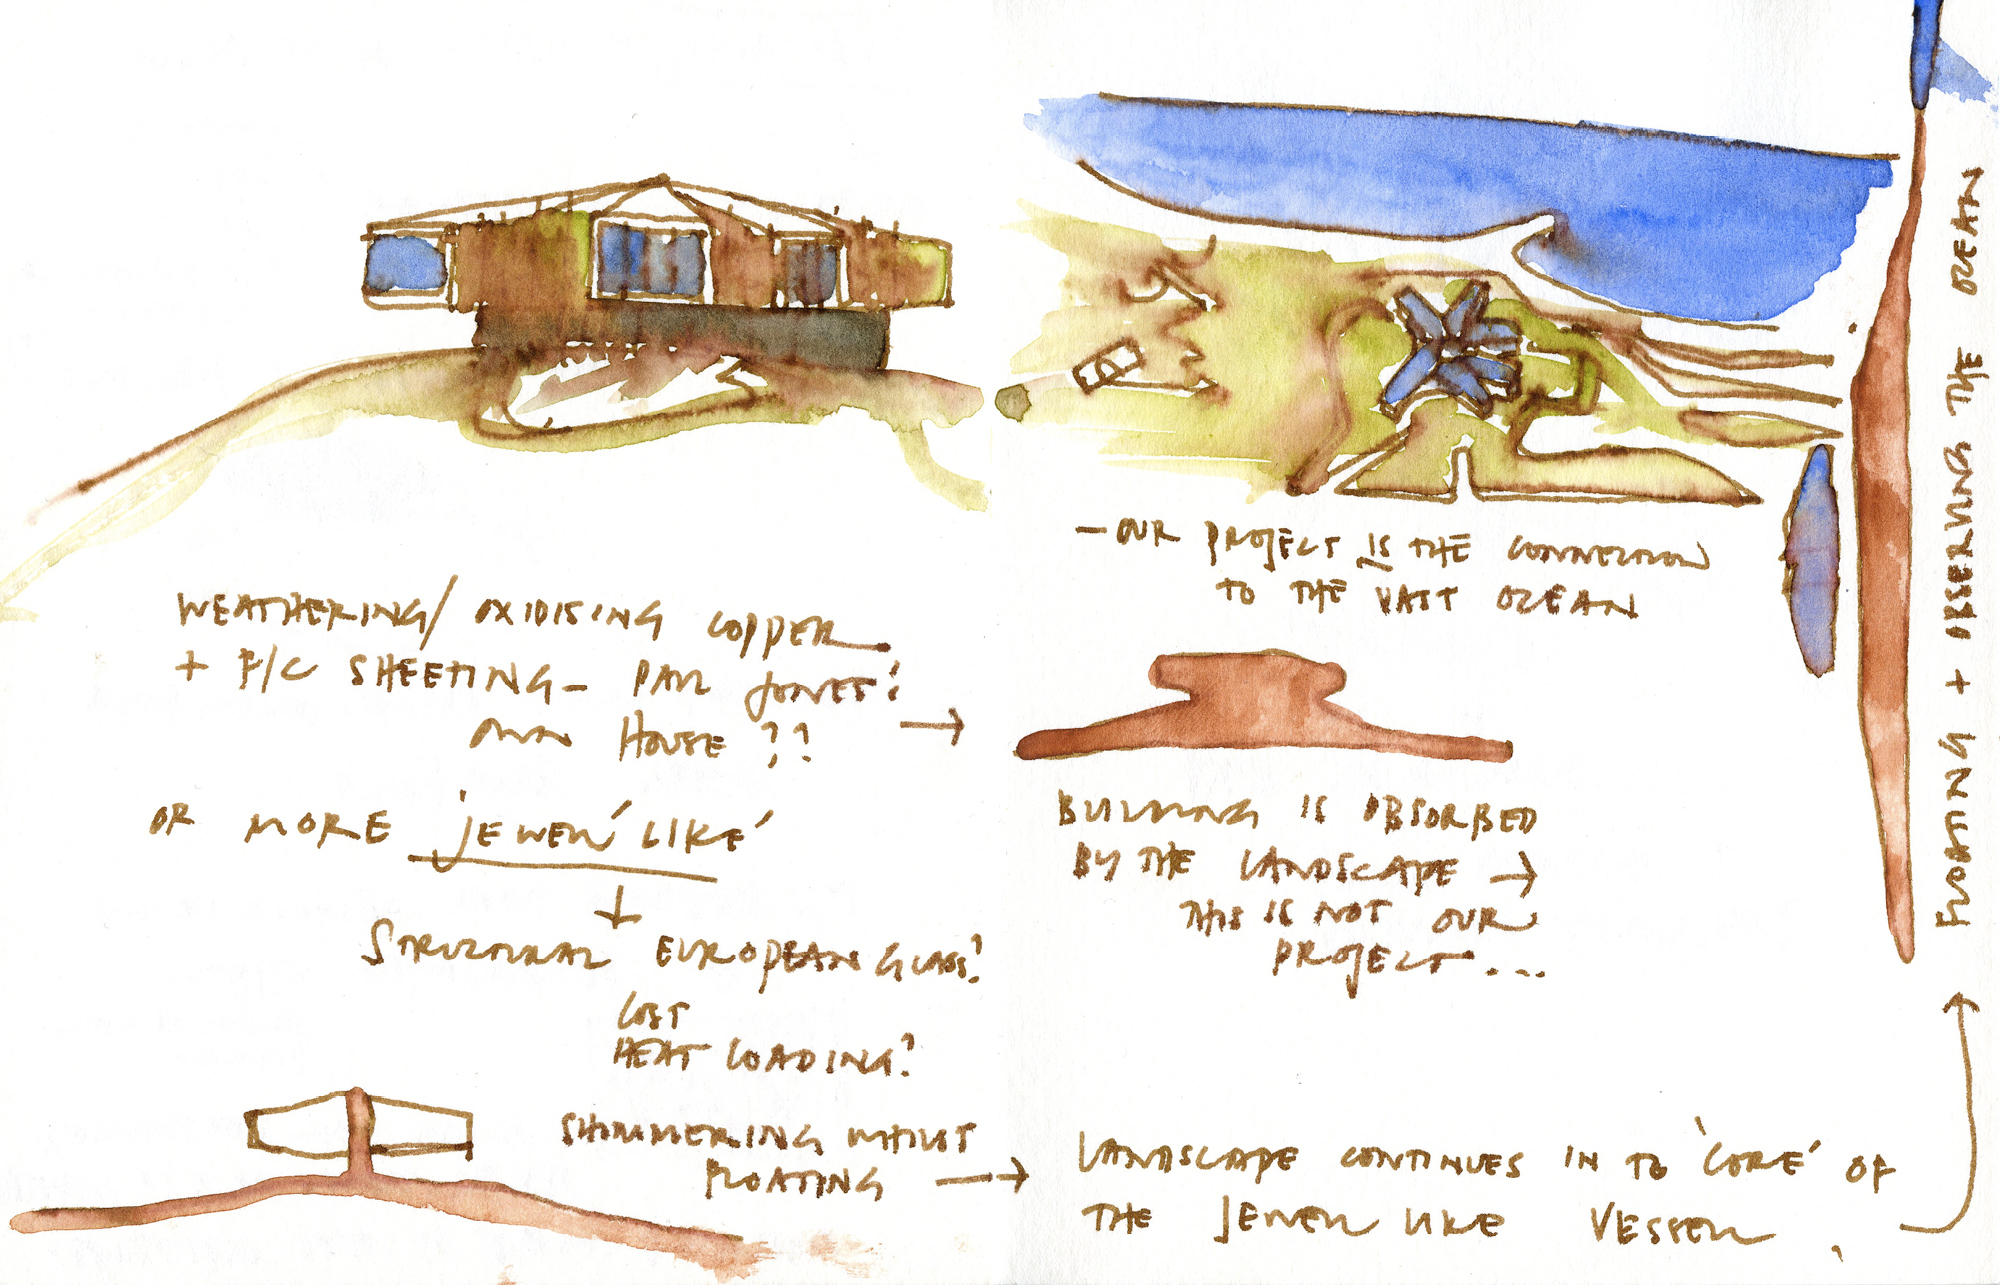 WEATHERING/ OXIDISING COPPER
+ F/C SHEETING - PAUL JONES'
OWN HOUSE ??
OR MORE 'JEWELL' LIKE'
STRUCTURAL EUROPEAN GLASS?
COST
HEAT LOADING?
SHIMMERING WHILST
FLOATING
- OUR PROJECT IS THE CONNECTION
TO THE VAST OCEAN
BUILDING IS ABSORBED
BY THE LANDSCAPE →
THIS IS NOT OUR
PROJECT...
LANDSCAPE CONTINUES IN TO 'CORE' OF
THE JEWELL LIKE VESSELL
FLOATING + OBSERVING THE OCEAN